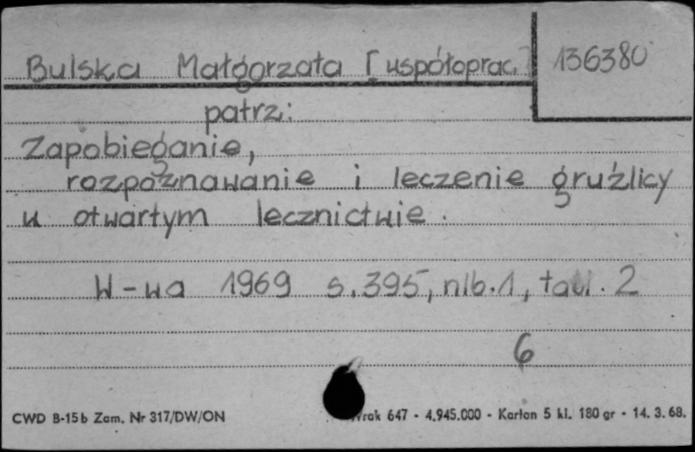 Bulska Małgorzata [współoprac.] 136380
patrz:
Zapobieganie,
rozpoznawanie i leczenie gruźlicy
w otwartym lecznictwie.
W-wa 1969 s. 395, nlb. 1, tabl. 2
6
CWD B-15b Zam. Nr 317/DW/ON 647 - 4.945.000 - Karton 5 kl. 180 gr - 14. 3. 68.